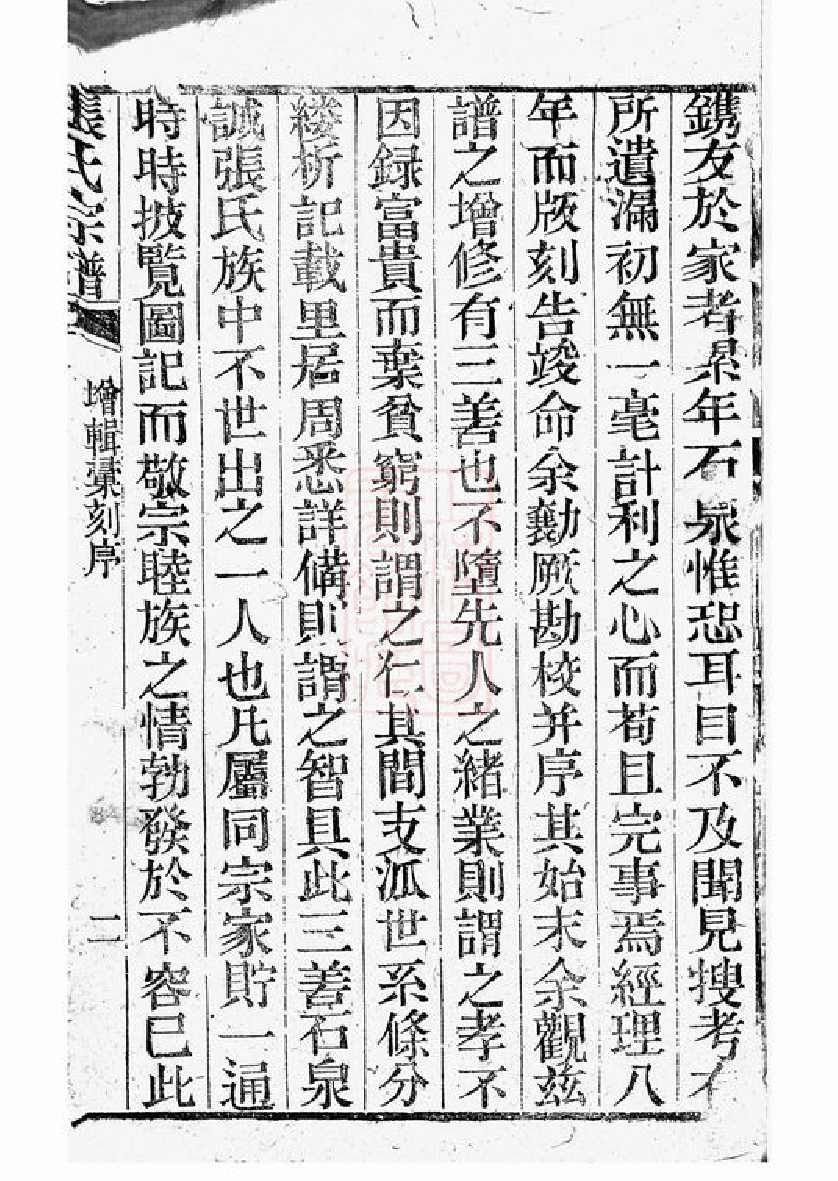 鐫友於家者累年石泉惟恐耳目不及聞見搜考
所遺漏初無一毫計利之心而苟且完事焉經理八
年而版刻告竣命余勷厥勘校并序其始末余觀玆
譜之增修有三善也不墮先人之緒業則謂之孝不
因録富貴而棄貧窮則謂之仁其間支派世系條分
縷析記載里居周悉詳備則謂之智具此三善石泉
誠張氏族中不世出之一人也凡屬同宗家貯一通
時時披覽圖記而敬宗睦族之情勃發於不容已此
張氏宗譜
增輯彙刻序
二